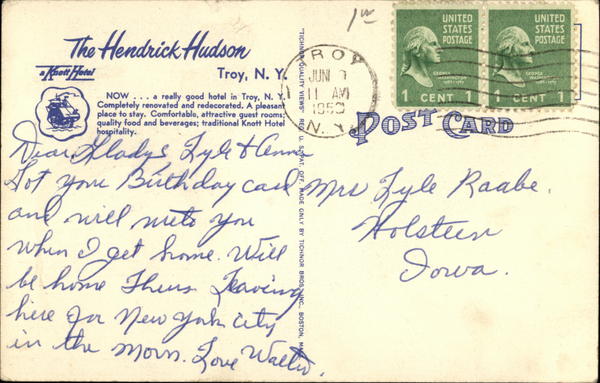 The Hendrick Hudson
a Knott Hotel
Troy, N. Y.
NOW . . . a really good hotel in Troy, N. Y.
Completely renovated and redecorated. A pleasant
place to stay. Comfortable, attractive guest rooms;
quality food and beverages; traditional Knott Hotel
hospitality.
Dear Gladys Lyle &
Got your Birthday card
and will write to you
when I get home. Will
be home Thurs. Leaving
here for New York City
in the morn. Love Walter.
"TICHNOR QUALITY VIEWS" REG. U. S. PAT. OFF. MADE ONLY BY TICHNOR BROS., INC., BOSTON,
TROY
JUN
11 AM
N. Y.
UNITED
STATES
POSTAGE
GEORGE
WASHINGTON
1 CENT 1
UNITED
STATES
POSTAGE
GEORGE
WASHINGTON
1 CENT 1
POST CARD
Mrs Lyle Raabe.
Holstein
Iowa.